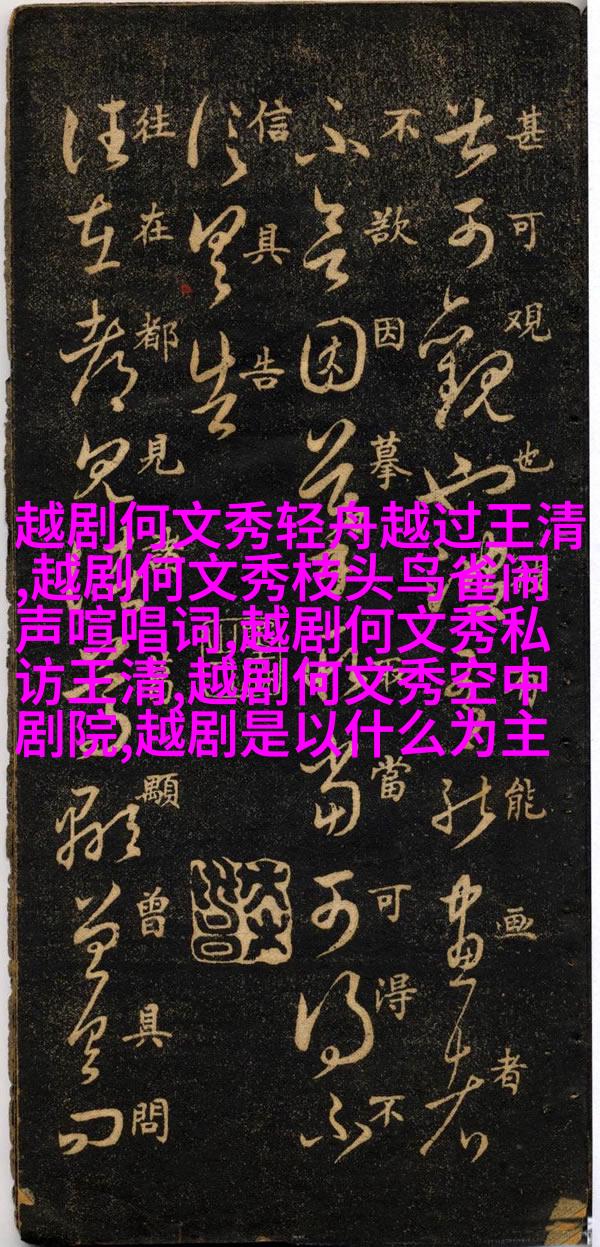 甚可観也彼有能画者
不欲因摹取當可得不
信具告
往在都見諸葛顯曾具問
越剧何文秀轻舟越过王清
,越剧何文秀枝头鸟雀闹
声喧唱词,越剧何文秀私
访王清,越剧何文秀空中
剧院,越剧是以什么为主